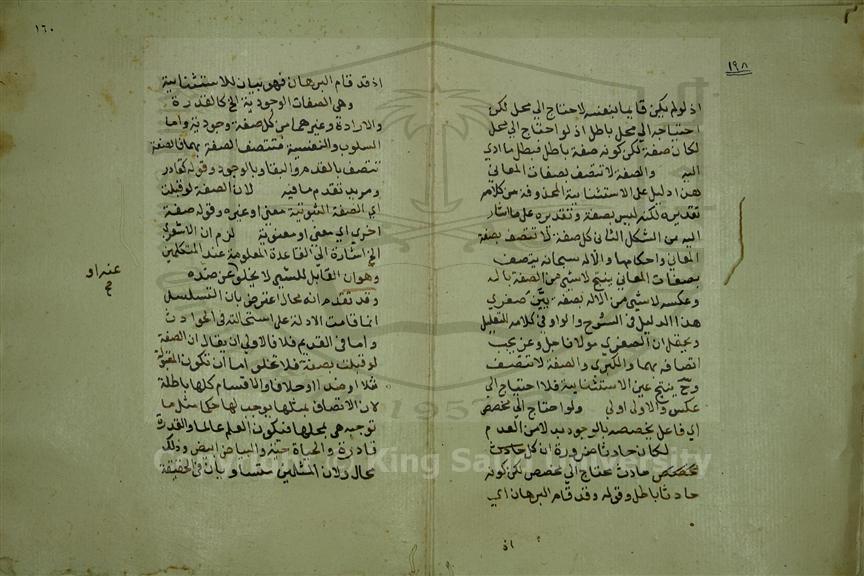 ١٩٨
اذ لو لم يكن قايما بنفسه لاحتاج الي محل لكن
احتياجه الي محل باطل اذ لو احتاج الي محل
لكان صفة لكن كونه صفة باطل فبطل ما ادي
اليه والصفة لا تتصف بصفات المعاني
هذا دليل علي الاستثنائية المحذوفة من كلامه
تقديره لكنه ليس بصفة وتقديره علي ما اشار
اليه من الشكل الثاني كل صفة لا تتصف بصفة
المعاني واحكامها والاله سبحانه يتصف
بصفات المعاني ينتج لا شي من الصفة باله
وعكسه لا شي من الاله بصفة بيّن صغري
هذا الدليل في الشرح والواو في كلامه للتعليل
ويحتمل ان الصغري مولانا جل وعز يجب
اتصافه بهما والكبري والصفة لا تتصف
وح ينتج عين الاستثنائية فلا احتياج الي
عكس والاولي اولي ولو احتاج الي مخصص
اي فاعل يخصصه بالوجود بدلا من العدم
لكان حادثا ضرورة ان كل حادث
مخصص حادث محتاج الي مخصص لكن كونه
حادثا باطل وقوله وقد قام البرهان اي
اذ
١٦٠
اذ قد قام البرهان فهو بيان للاستثنائية
وهي الصفات الوجودية الخ كالقدرة
والارادة وغيرهما من كل صفة وجودية واما
السلوب والنفسية فتتصف الصفة بهما فالصفة
تتصف بالقدم والبقا وبالوجود وقوله كقادر
ومريد تقدم ما فيه لان الصفة لو قبلت
اي الصفة الثبوتية معني او غيره وقوله صفة
اخري اي معني او معنوية لزم ان لا تعري
الخ اشارة الي القاعدة المعلومة عند المتكلمين
وهو ان القابل للشي لا يخلو عن ضده
عنه او
وقد تقدم انه محال اعترض بان التسلسل
انما قامت الادلة علي استحالته في الحوادث
واما في القديم فلا فالاولي ان يقال ان الصفة
لو قبلت بصفة فلا تخلو اما ان تكون المقبولة
مثلا او ضدا او خلافا والاقسام كلها باطلة
لان الاتصاف بمثلها يوجب لها حكما مثل ما
توجبه هي بمحلها فيكون العلم عالما والقدرة
قادرة والحياة حية والبياض ابيض وذلك
محال ولان المثلين متساويان في الحقيقة
Copyright © King Saud University
1957